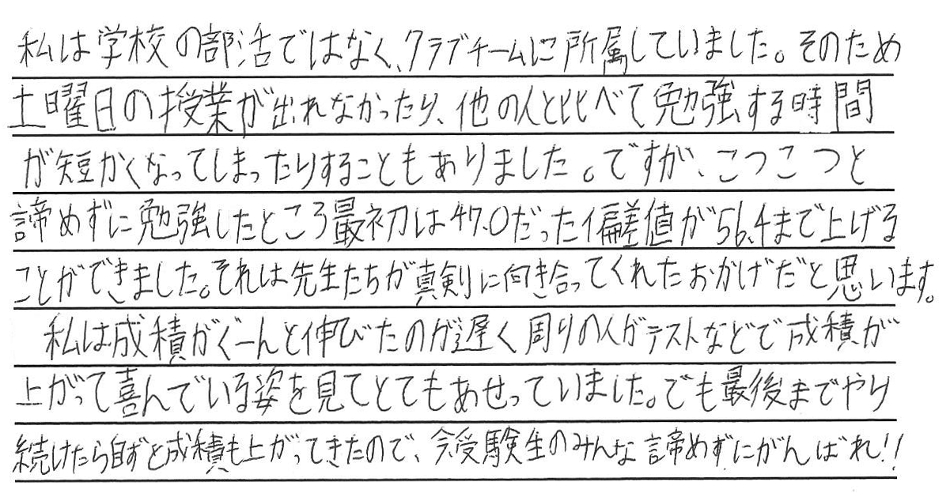 私は学校の部活ではなく、クラブチームに所属していました。そのため
土曜日の授業が出れなかったり、他の人と比べて勉強する時間
が短かくなってしまったりすることもありました。ですが、こつこつと
諦めずに勉強したところ最初は47.0だった偏差値が56.4まで上げる
ことができました。それは先生たちが真剣に向き合ってくれたおかげだと思います。
私は成積がぐーんと伸びたのが遅く周りの人がテストなどで成積が
上がって喜んでいる姿を見てとてもあせっていました。でも最後までやり
続けたら自ずと成積も上がってきたので、今受験生のみんな諦めずにがんばれ!!